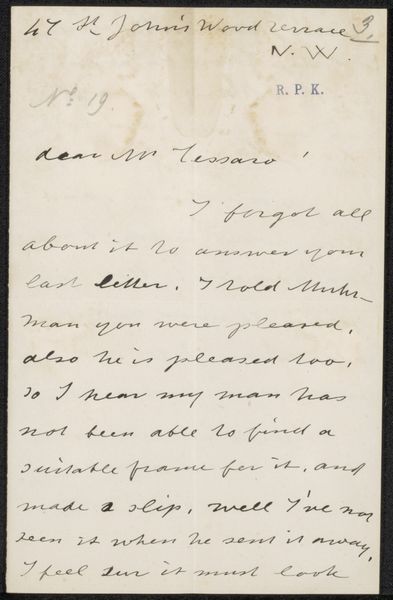 47 St. John's Wood Terrace 3.
N. W.
R. P. K.
No. 19.
dear Mr Tessaro!
I forgot all
about it to answer your
last letter. I told Muhr-
man you were pleased,
also he is pleased too,
so I hear my man has
not been able to find a
suitable frame for it, and
made a slip, well I've not
seen it when he sent it away,
I feel sur it must look